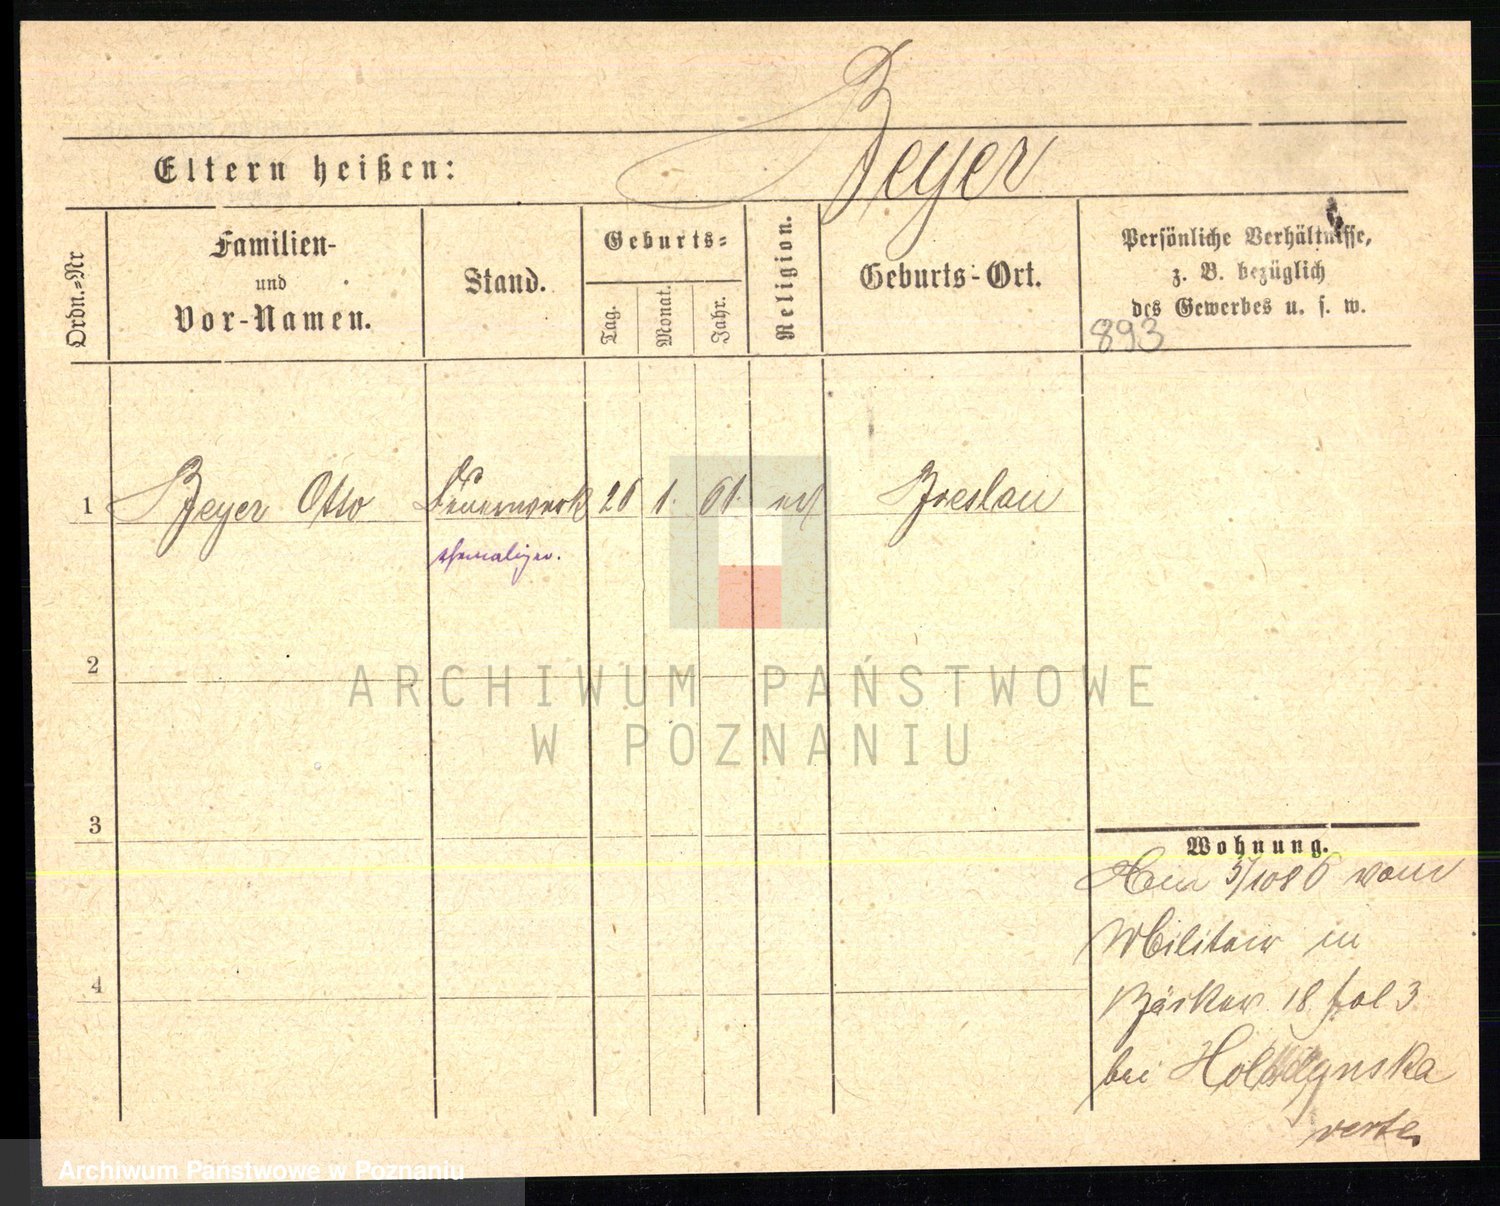 Beyer
Eltern heißen:
Ordn.=Nr
Familien-
und
Vor-Namen.
Stand.
Geburts=
Tag.
Monat.
Jahr.
Religion.
Geburts-Ort.
Persönliche Verhältnisse,
z. B. bezüglich
des Gewerbes u. s. w.
893
1 Beyer Otto Feuerwerk 26 1. 61. Breslau
ehemaliger.
2
3
4
Wohnung.
Den 5/10 86 vom
Militair in
Bäcker 18 fol 3
bei
verte
ARCHIWUM PAŃSTWOWE
W POZNANIU
Archiwum Państwowe w Poznaniu